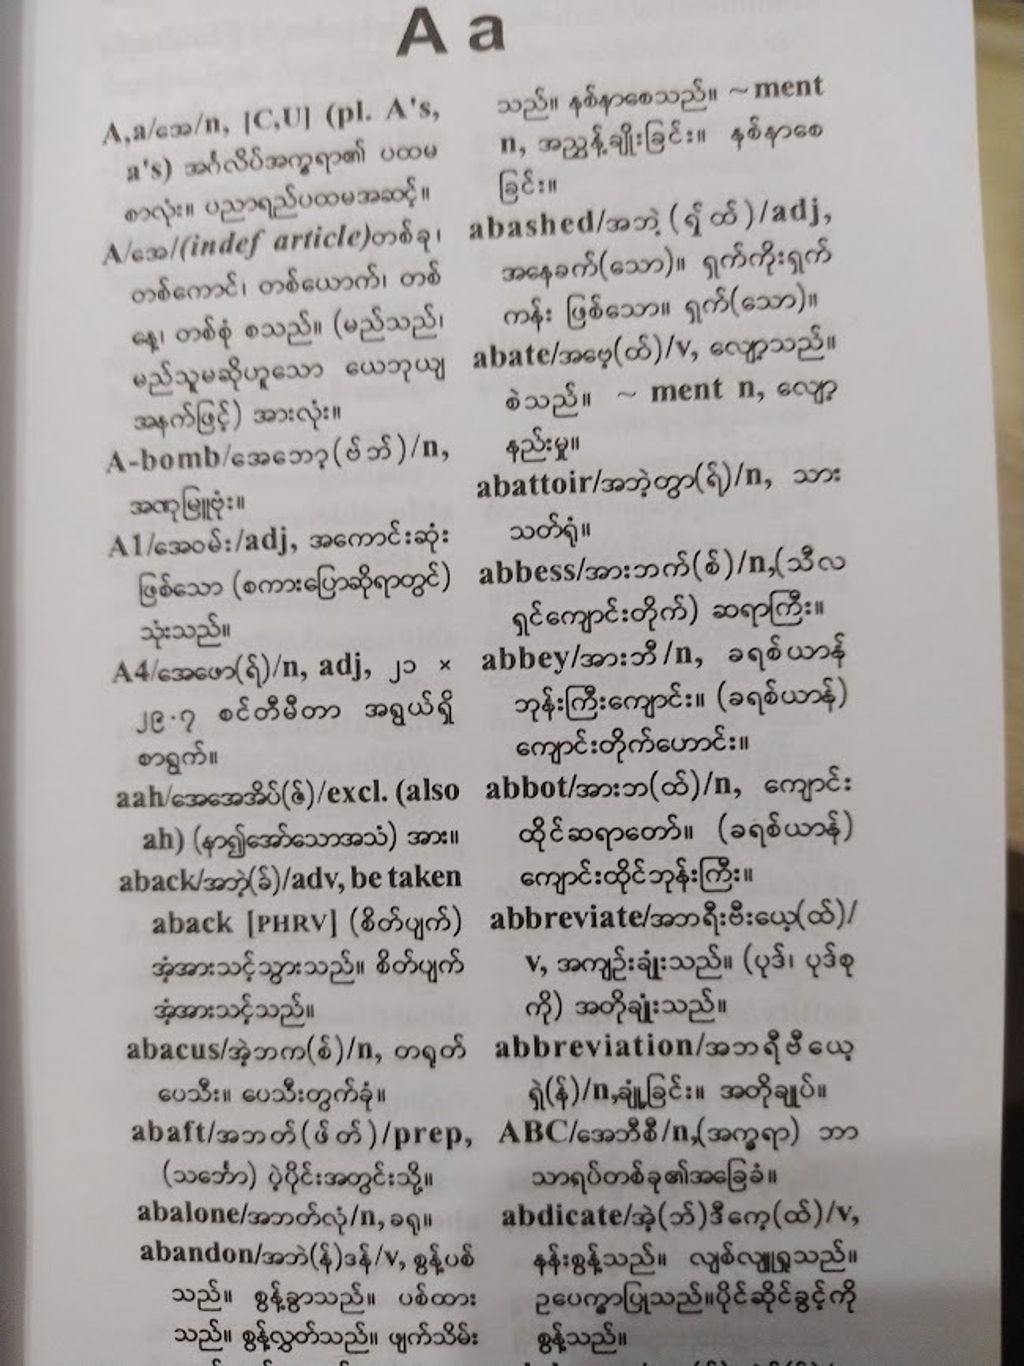 A a
A,a/အေ/n, [C,U] (pl. A's,
a's) အင်္ဂလိပ်အက္ခရာ၏ ပထမ
စာလုံး။ ပညာရည်ပထမအဆင့်။
A/အေ/(indef article)တစ်ခု၊
တစ်ကောင်၊ တစ်ယောက်၊ တစ်
နေ့၊ တစ်စုံ စသည်။ (မည်သည်၊
မည်သူမဆိုဟူသော ယေဘုယျ
အနက်ဖြင့်) အားလုံး။
A-bomb/အေဘော့(ဗ်ဘ်)/n,
အဏုမြူဗုံး။
A1/အေဝမ်း/adj, အကောင်းဆုံး
ဖြစ်သော (စကားပြောဆိုရာတွင်)
သုံးသည်။
A4/အေဖော(ရ်)/n, adj, ၂၁ ×
၂၉.၇ စင်တီမီတာ အရွယ်ရှိ
စာရွက်။
aah/အေအေအိပ်(ဇ်)/excl. (also
ah) (နာ၍အော်သောအသံ) အား။
aback/အဘဲ့(ခ်)/adv, be taken
aback [PHRV] (စိတ်ပျက်)
အံ့အားသင့်သွားသည်။ စိတ်ပျက်
အံ့အားသင့်သည်။
abacus/အဲ့ဘက(စ်)/n, တရုတ်
ပေသီး။ ပေသီးတွက်ခုံ။
abaft/အဘတ်(ဖ်တ်)/prep,
(သင်္ဘော) ပဲ့ပိုင်းအတွင်းသို့။
abalone/အဘတ်လုံ/n, ခရု။
abandon/အဘဲ(န်)ဒန်/v, စွန့်ပစ်
သည်။ စွန့်ခွာသည်။ ပစ်ထား
သည်။ စွန့်လွှတ်သည်။ ဖျက်သိမ်း
သည်။ နစ်နာစေသည်။ ~ment
n, အညွှန့်ချိုးခြင်း။ နစ်နာစေ
ခြင်း။
abashed/အဘဲ့(ရှ်ထ်)/adj,
အနေခက်(သော)။ ရှက်ကိုးရှက်
ကန်း ဖြစ်သော။ ရှက်(သော)။
abate/အဗေ့(ထ်)/v, လျော့သည်။
စဲသည်။ ~ ment n, လျော့
နည်းမှု။
abattoir/အဘဲ့တွာ(ရ်)/n, သား
သတ်ရုံ။
abbess/အားဘက်(စ်)/n,(သီလ
ရှင်ကျောင်းတိုက်) ဆရာကြီး။
abbey/အားဘီ/n, ခရစ်ယာန်
ဘုန်းကြီးကျောင်း။ (ခရစ်ယာန်)
ကျောင်းတိုက်ဟောင်း။
abbot/အားဘ(ထ်)/n, ကျောင်း
ထိုင်ဆရာတော်။ (ခရစ်ယာန်)
ကျောင်းထိုင်ဘုန်းကြီး။
abbreviate/အဘရီးဗီးယေ့(ထ်)/
v, အကျဉ်းချုံးသည်။ (ပုဒ်၊ ပုဒ်စု
ကို) အတိုချုံးသည်။
abbreviation/အဘရီဗီယေ့
ရှဲ(န်)/n,ချုံ့ခြင်း။ အတိုချုပ်။
ABC/အေဘီစီ/n,(အက္ခရာ) ဘာ
သာရပ်တစ်ခု၏အခြေခံ။
abdicate/အဲ့(ဘ်)ဒီကေ့(ထ်)/v,
နန်းစွန့်သည်။ လျစ်လျူရှုသည်။
ဥပေက္ခာပြုသည်။ပိုင်ဆိုင်ခွင့်ကို
စွန့်သည်။